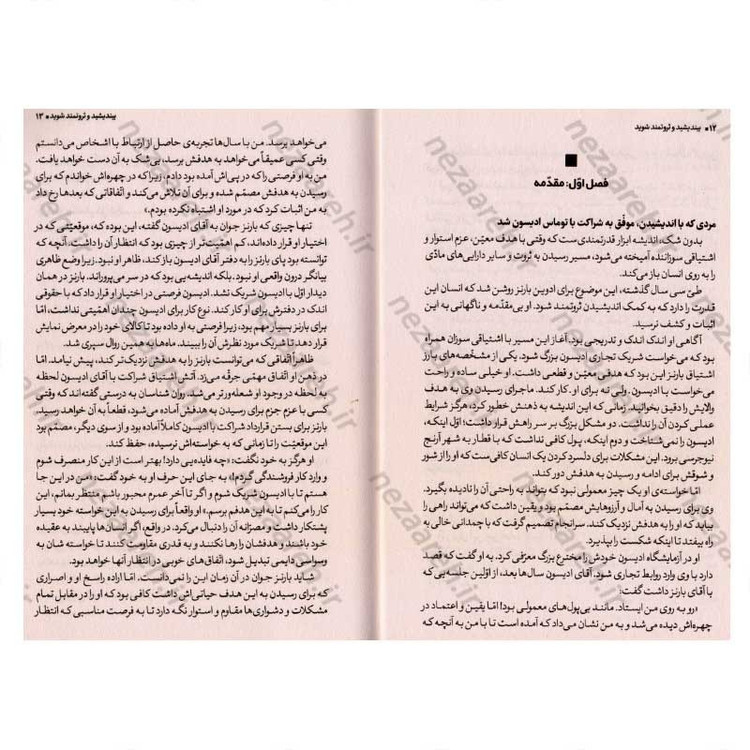 ۱۲ ■ بیندیشید و ثروتمند شوید
فصل اوّل: مقدّمه
مردی که با اندیشیدن، موفّق به شراکت با توماس ادیسون شد
بدون شک، اندیشه ابزار قدرتمندی ست که وقتی با هدف معیّن، عزم استوار و
اشتیاقی سوزاننده آمیخته می‌شود، مسیر رسیدن به ثروت و سایر دارایی‌های مادّی
را به روی انسان باز می‌کند.
طیّ سی سال گذشته، این موضوع برای ادوین بارنز روشن شد که انسان این
قدرت را دارد که به کمک اندیشیدن ثروتمند شود. او بی‌مقدّمه و ناگهانی به این
اثبات و کشف نرسید.
آگاهی او اندک اندک و تدریجی بود. آغاز این مسیر با اشتیاقی سوزان همراه
بود که می‌خواست شریک تجاری ادیسون بزرگ شود. یکی از مشخّصه‌های بارز
اشتیاق بارنز این بود که هدفی معیّن و قطعی داشت. او خیلی ساده و راحت
می‌خواست با ادیسون، ولی نه برای او، کار کند. ماجرای رسیدن وی به هدف
والایش را دقیق بخوانید. زمانی که این اندیشه به ذهنش خطور کرد، هرگز شرایط
عملی کردن آن را نداشت. دو مشکل بزرگ بر سر راهش قرار داشت؛ اوّل اینکه،
ادیسون را نمی‌شناخت و دوم اینکه، پول کافی نداشت که با قطار به شهر آرنج
نیوجرسی برود. این مشکلات برای دلسرد کردن یک انسان کافی‌ست که او را از شور
و شوقش برای ادامه و رسیدن به هدفش دور کند.
امّا خواسته‌ی او یک چیز معمولی نبود که بتواند به راحتی آن را نادیده بگیرد.
وی برای رسیدن به آمال و آرزوهایش مصمّم بود و یقین داشت که می‌تواند راهی را
بیابد که او را به هدفش نزدیک کند. سرانجام تصمیم گرفت که با چمدانی خالی به
راه بیفتد تا اینکه شکست را بپذیرد.
او در آزمایشگاه ادیسون خودش را مخترع بزرگ معرّفی کرد. به او گفت که قصد
دارد با وی وارد روابط تجاری شود. آقای ادیسون سال‌ها بعد، از اوّلین جلسه‌یی که
با آقای بارنز داشت گفت:
«رو به روی من ایستاد. مانند بی‌پول‌های معمولی بود! امّا یقین و اعتماد در
چهره‌اش دیده می‌شد و به من نشان می‌داد که آمده است تا با من به آنچه که
بیندیشید و ثروتمند شوید ■ ۱۳
می‌خواهد برسد. من با سال‌ها تجربه‌ی حاصل از ارتباط با اشخاص می‌دانستم
وقتی کسی عمیقاً می‌خواهد به هدفش برسد، بی‌شک به آن دست خواهد یافت.
من به او فرصتی را که در پی‌اش آمده بود دادم. زیرا که در چهره‌اش خواندم که برای
رسیدن به هدفش مصمّم شده و برای آن تلاش می‌کند و اتّفاقاتی که بعدها رخ داد
به من اثبات کرد که در مورد او اشتباه نکرده بودم.»
تنها چیزی که بارنز جوان به آقای ادیسون گفته، این بوده که، موقعیّتی که در
اختیار او قرار داده‌اند، کم اهمیّت‌تر از چیزی بود که انتظار آن را داشت. آنچه که
توانسته بود پای بارنز را به دفتر آقای ادیسون باز کند، ظاهر او نبود. زیرا وضع ظاهری
بیانگر درون واقعی او نبود. بلکه اندیشه‌یی بود که در سر می‌پروراند. بارنز هرگز در
دیدار اوّل با ادیسون شریک نشد. ادیسون فرصتی در اختیار او قرار داد که با حقوقی
اندک در دفترش برای او کار کند. نوع کار برای ادیسون چندان اهمیّتی نداشت، امّا
برای بارنز بسیار مهم بود، زیرا فرصتی به او داده بود تا کالای خود را در معرض نمایش
قرار دهد تا شریک مورد نظرش آن را ببیند. ماه‌ها به همین روال سپری شد.
ظاهراً اتّفاقی که می‌توانست بارنز را به هدفش نزدیک‌تر کند، پیش نیامد. امّا
در ذهن او اتّفاق مهمّی جرقّه می‌زد. آتش اشتیاق شراکت با آقای ادیسون لحظه
به لحظه در وجود او شعله‌ور تر می‌شد. روان شناسان به درستی گفته‌اند که وقتی
کسی با عزم جزم برای رسیدن به هدفش آماده می‌شود، قطعاً به آن خواهد رسید.
بارنز برای بستن قرارداد شراکت با ادیسون کاملاً آماده بود و از سوی دیگر، مصمّم بود
این موقعیّت را تا زمانی که به خواسته‌اش نرسیده، حفظ کند.
او هرگز به خود نگفت: «چه فایده‌یی دارد! بهتر است از این کار منصرف شوم
و وارد کار فروشندگی گردم!» به جای این حرف او به خود گفت: «من در این جا
هستم تا با ادیسون شریک شوم و اگر تا آخر عمرم مجبور باشم منتظر بمانم، این
کار را می‌کنم تا به این هدفم برسم.» او واقعاً برای رسیدن به این خواسته خود بسیار
پشتکار داشت و مصرّانه آن را دنبال می‌کرد. در واقع، اگر انسان‌ها پایبند به عقیده
خود باشند و هدفشان را رها نکنند و به قدری مقاومت کنند تا خواسته شان به
وسواسی دایمی تبدیل شود، اتّفاق‌های خوبی در انتظار آنها خواهد بود.
شاید بارنز جوان در آن زمان این را نمی‌دانست. امّا اراده راسخ او و اصراری
که برای رسیدن به این هدف حیاتی‌اش داشت کافی بود که او را در مقابل تمام
مشکلات و دشواری‌ها مقاوم و استوار نگه دارد تا به فرصت مناسبی که انتظار
nezaareh.ir